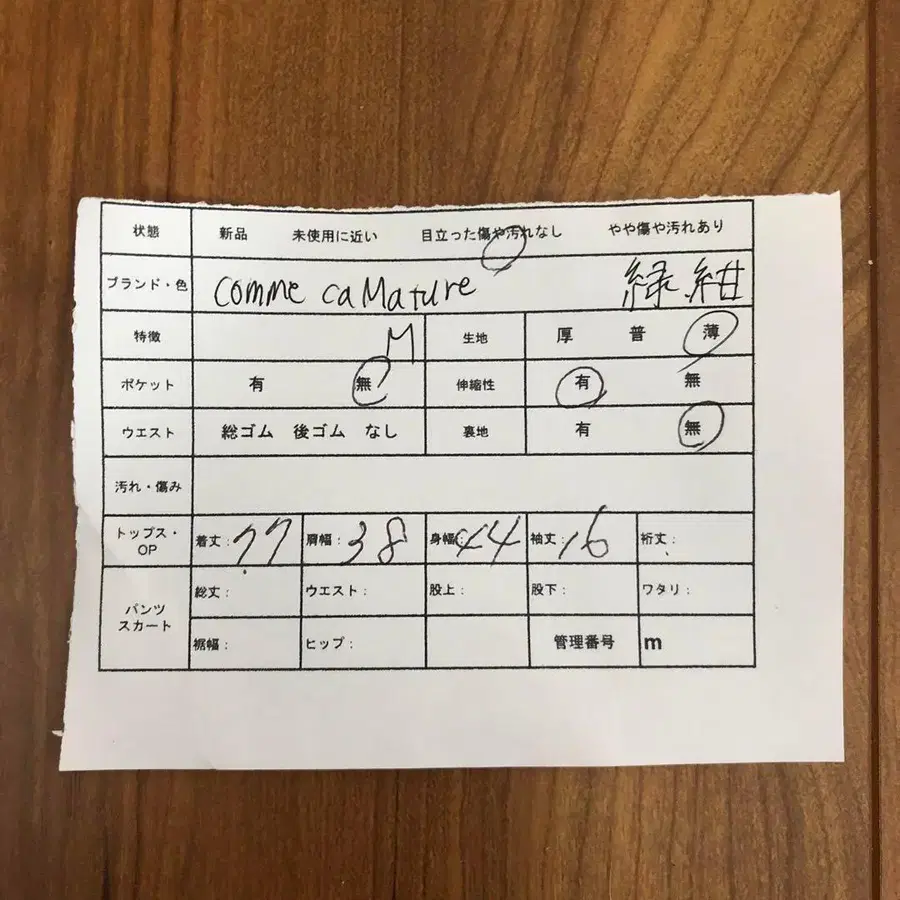 状態 新品 未使用に近い 目立った傷や汚れなし やや傷や汚れあり
ブランド・色 comme ca Mature 緑 紺
特徴 M 生地 厚 普 薄
ポケット 有 無 伸縮性 有 無
ウエスト 総ゴム 後ゴム なし 裏地 有 無
汚れ・傷み
トップス・OP 着丈: 77 肩幅: 38 身幅: 44 袖丈: 16 裄丈:
パンツ スカート 総丈: ウエスト: 股上: 股下: ワタリ:
裾幅: ヒップ: 管理番号 m